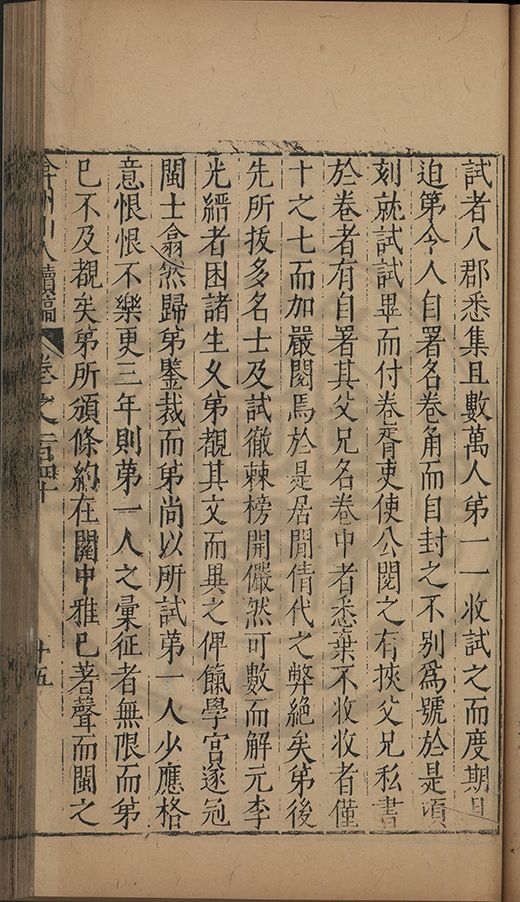 試者八郡悉集且數萬人第一一收試之而度期日
迫第今人自署名卷角而自封之不別爲號於是頃
刻就試試畢而付卷胥吏使公閱之有挾父兄私書
於卷者有自署其父兄名卷中者悉棄不收收者僅
十之七而加嚴閱焉於是居閒倩代之弊絕矣第後
先所拔多名士及試徹棘榜開儼然可數而解元李
光縉者困諸生久第覩其文而異之俾餼學宮遂冠
閩士翕然歸第鑒裁而第尚以所試第一人少應格
意恨恨不樂更三年則第一人之彙征者無限而第
已不及覩矣第所頒條約在關中雅已著聲而閩之
弇州山人續稿 卷之一百四十 十五